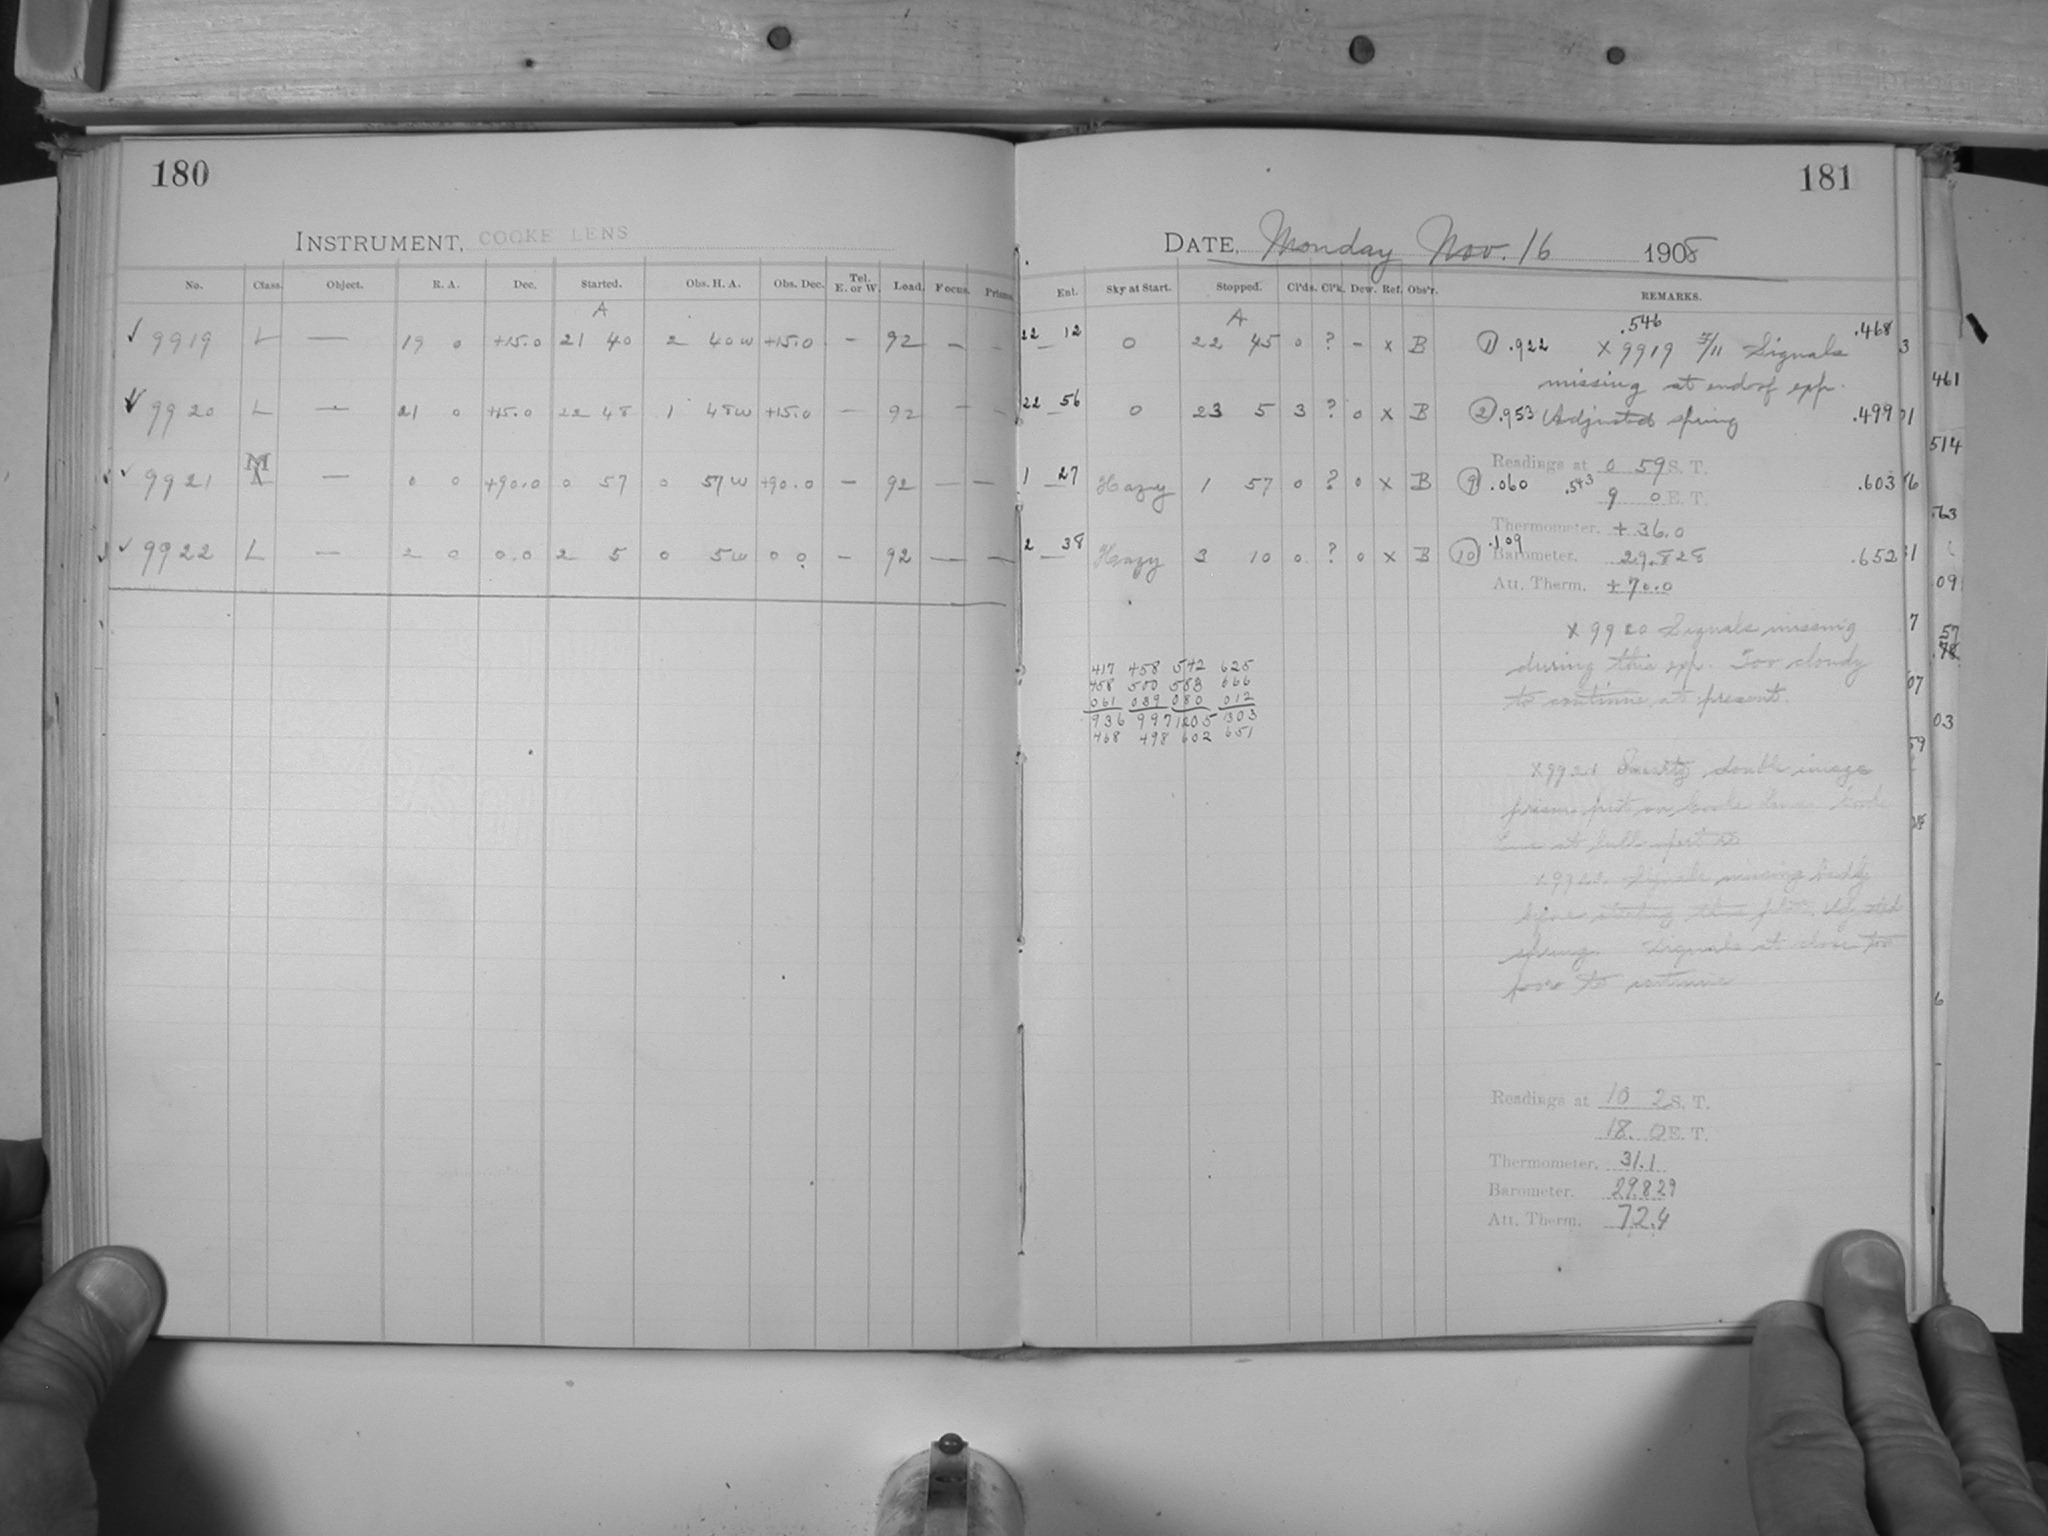 180
181
INSTRUMENT, COOKE LENS
DATE, Monday Nov. 16 1908
No. Class. Object. R. A. Dec. Started. Obs. H. A. Obs. Dec. Tel. E. or W. Load. Focus. Prisms. Ent. Sky at Start. Stopped. Cl'ds. Cl'k. Dew. Ref. Obs'r. REMARKS.
A A
✓ 9919 L — 19 0 +15.0 21 40 2 40w +15.0 — 92 — — 22 12 0 22 45 0 ? — x B ① .922 x 9919 .546 Signals .468
missing at end of exp.
✓ 9920 L — 21 0 +15.0 22 48 1 48w +15.0 — 92 — — 22 56 0 23 5 3 ? 0 x B ② .953 Adjusted spring .499
Readings at 0 59 S. T.
✓ 9921 M — 0 0 +90.0 0 57 0 57w +90.0 — 92 — — 1 27 Hazy 1 57 0 ? 0 x B ⑨ .060 .543 9 0 E. T. .603
Thermometer, +36.0
✓ 9922 L — 2 0 0.0 2 5 0 5w 0 0 — 92 — — 2 38 Hazy 3 10 0 ? 0 x B ⑩ .109 Barometer. 29.828 .652
Att. Therm. +70.0
x 9920 Signals missing
during this exp. Too cloudy
to continue at present.
417 458 542 625
458 500 583 666
061 039 080 012
936 997 1205 1303
468 498 602 651
x 9921 double image
prism put on Cooke Lens. Cooke
Lens at full aperture
x 9922. Signals missing badly
before starting this plate. Adjusted
spring. Signals at close too
poor to continue
Readings at 10 2 S. T.
18. 0 E. T.
Thermometer, 31.1
Barometer. 29.829
Att. Therm. 72.4
461
514
63
09
57
78
03